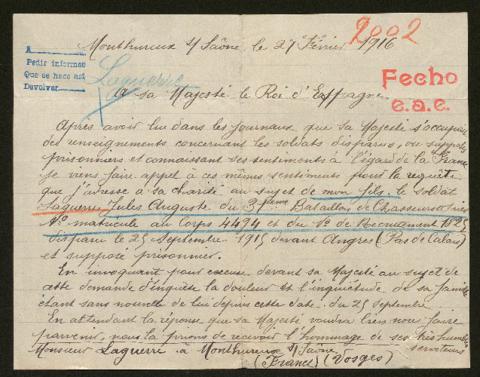 2002
Monthureux s/ Saône, le 27 Février 1916
A
Pedir informes
Que se hace así
Devolver
Laguerre
Fecho
e.a.e.
A sa Majesté le Roi d'Espagne
Après avoir lu dans les journaux, que sa Majesté s'occupait
des renseignements concernant les soldats disparus, ou supposés
prisonniers et connaissant ses sentiments à l'égard de la France
je viens faire appel à ces mêmes sentiments pour la requête
que j'adresse à sa charité au sujet de mon fils le soldat
Laguerre, Jules Auguste du Bataillon de Chasseurs
No matricule au Corps 4494 et du No de Recrutement
disparu le 25 Septembre 1915 devant Angres (Pas de Calais)
et supposé prisonnier.
En invoquant pour excuse devant sa Majesté au sujet de
cette demande d'enquête la douleur et l'inquiétude de sa famille
étant sans nouvelle de lui depuis cette date du 25 Septembre
En attendant la réponse, que sa Majesté voudra bien nous faire
parvenir, nous la prions de recevoir l'hommage de ses très humbles
serviteurs
Monsieur Laguerre à Monthureux s/ Saône
(France) (Vosges)